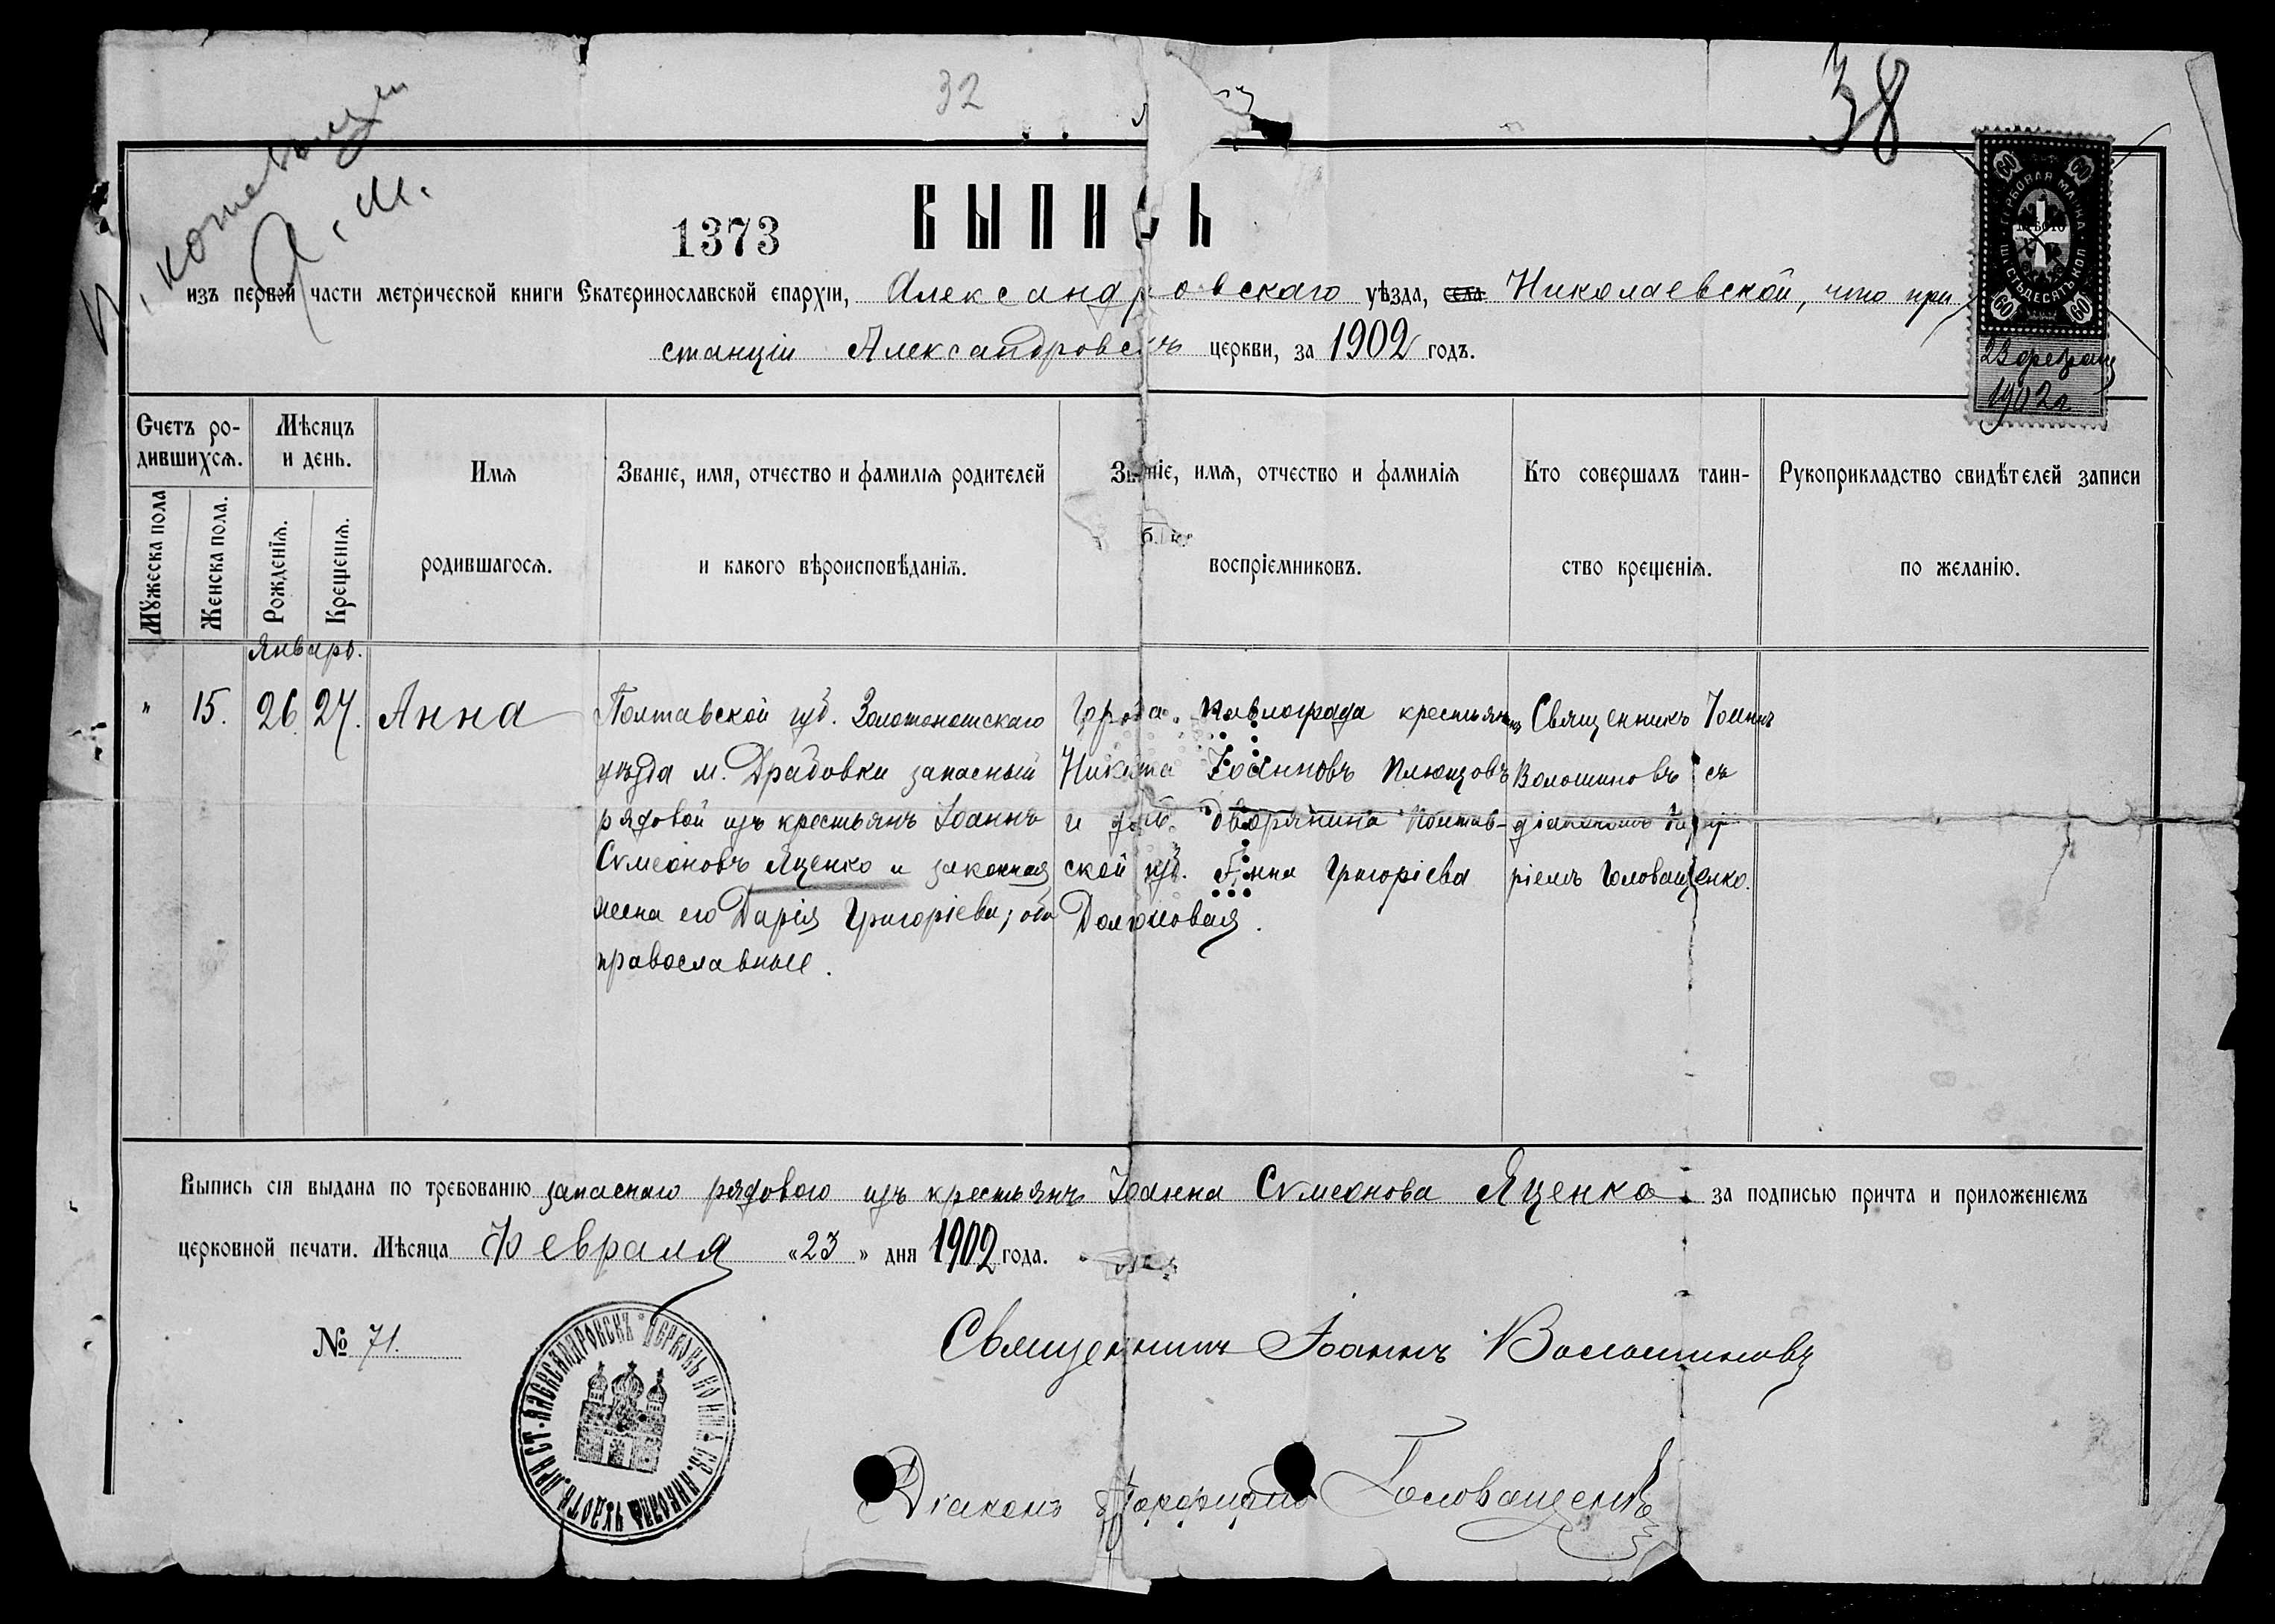 32
38
А. М.
1373
ВЫПИСЬ
изъ первой части метрической книги Екатеринославской епархіи, Александровскаго уѣзда, села Николаевской, что при
станціи Александровскъ церкви, за 1902 годъ.
ГЕРБОВАЯ МАРКА
ШЕСТЬДЕСЯТЪ КОП
60 60
60 60
23 февраля
1902 г
Счетъ ро-
дившихся.
Мѣсяцъ
и день.
Имя
родившагося.
Званіе, имя, отчество и фамилія родителей
и какого вѣроисповѣданія.
Званіе, имя, отчество и фамилія
воспріемниковъ.
Кто совершалъ таин-
ство крещенія.
Рукоприкладство свидѣтелей записи
по желанію.
Мужеска пола
Женска пола.
Рожденія.
Крещенія.
Январь.
" 15. 26. 27. Анна
Полтавской губ. Золотоношскаго
уѣзда м. Драбовки запасный
рядовой изъ крестьянъ Іоаннъ
Сѵмеоновъ Яценко и законная
жена его Дарія Григоріева; оба
православные.
Города Павлограда крестьянинъ
Никита Іоанновъ Плющовъ
и дочь дворянина Полтав-
ской губ. Анна Григоріева
Долюновая.
Священникъ Іоаннъ
Волошиновъ съ
діакономъ
ріемъ Головащенко.
Выпись сія выдана по требованію запаснаго рядового изъ крестьянъ Іоанна Сѵмеонова Яценко за подписью причта и приложеніемъ
церковной печати. Мѣсяца Февраля «23» дня 1902 года.
№ 71.
Священникъ Іоаннъ Волошиновъ
Діаконъ Порфирій Головащенко